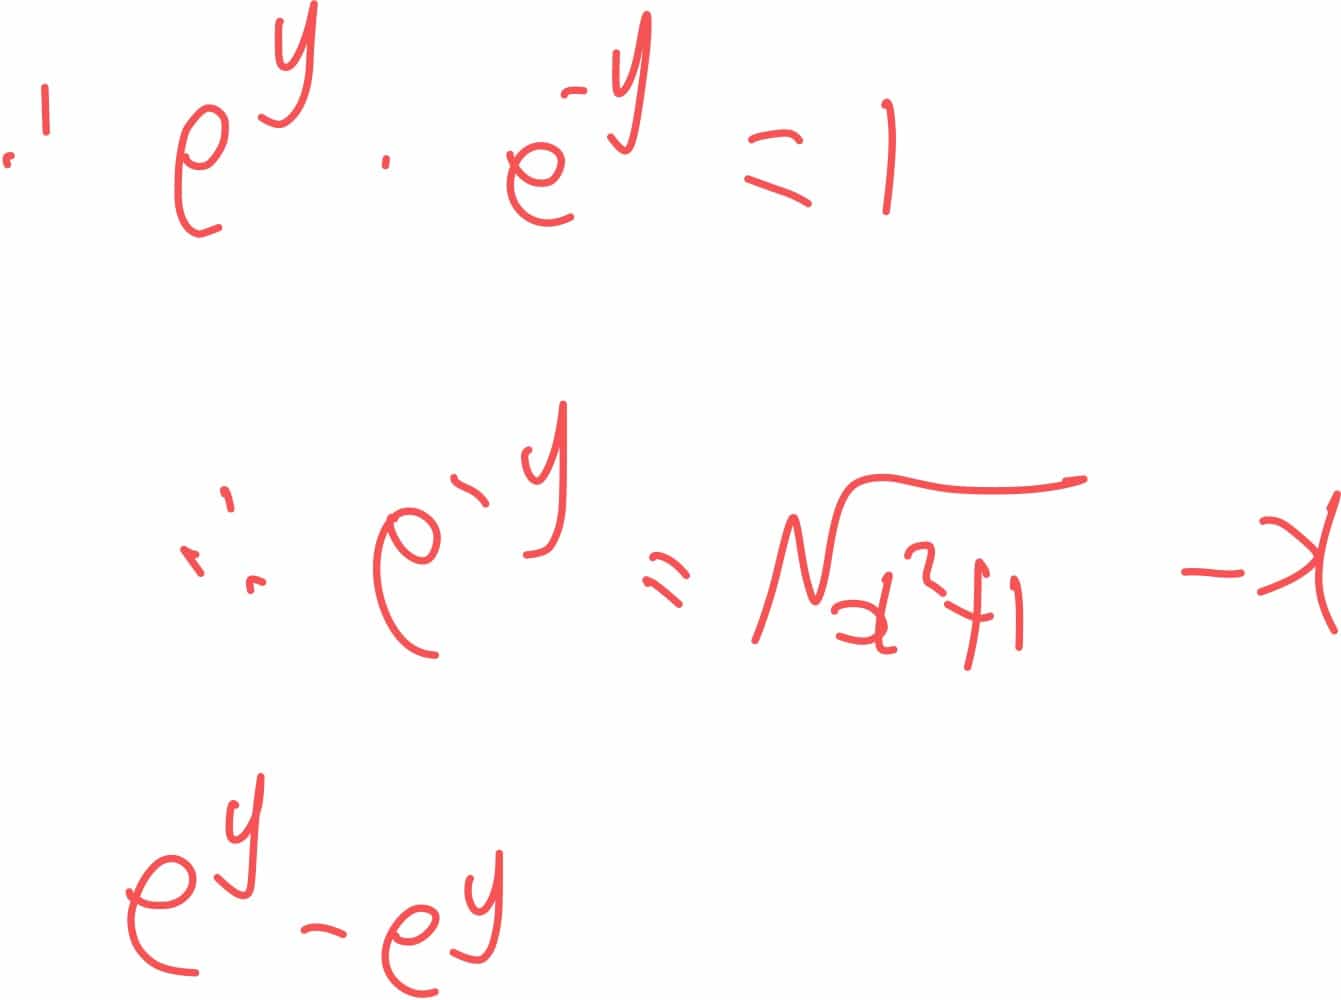 ∵ e^y · e^-y = 1
∴ e^-y = √(x²+1) - x
e^y - e^y